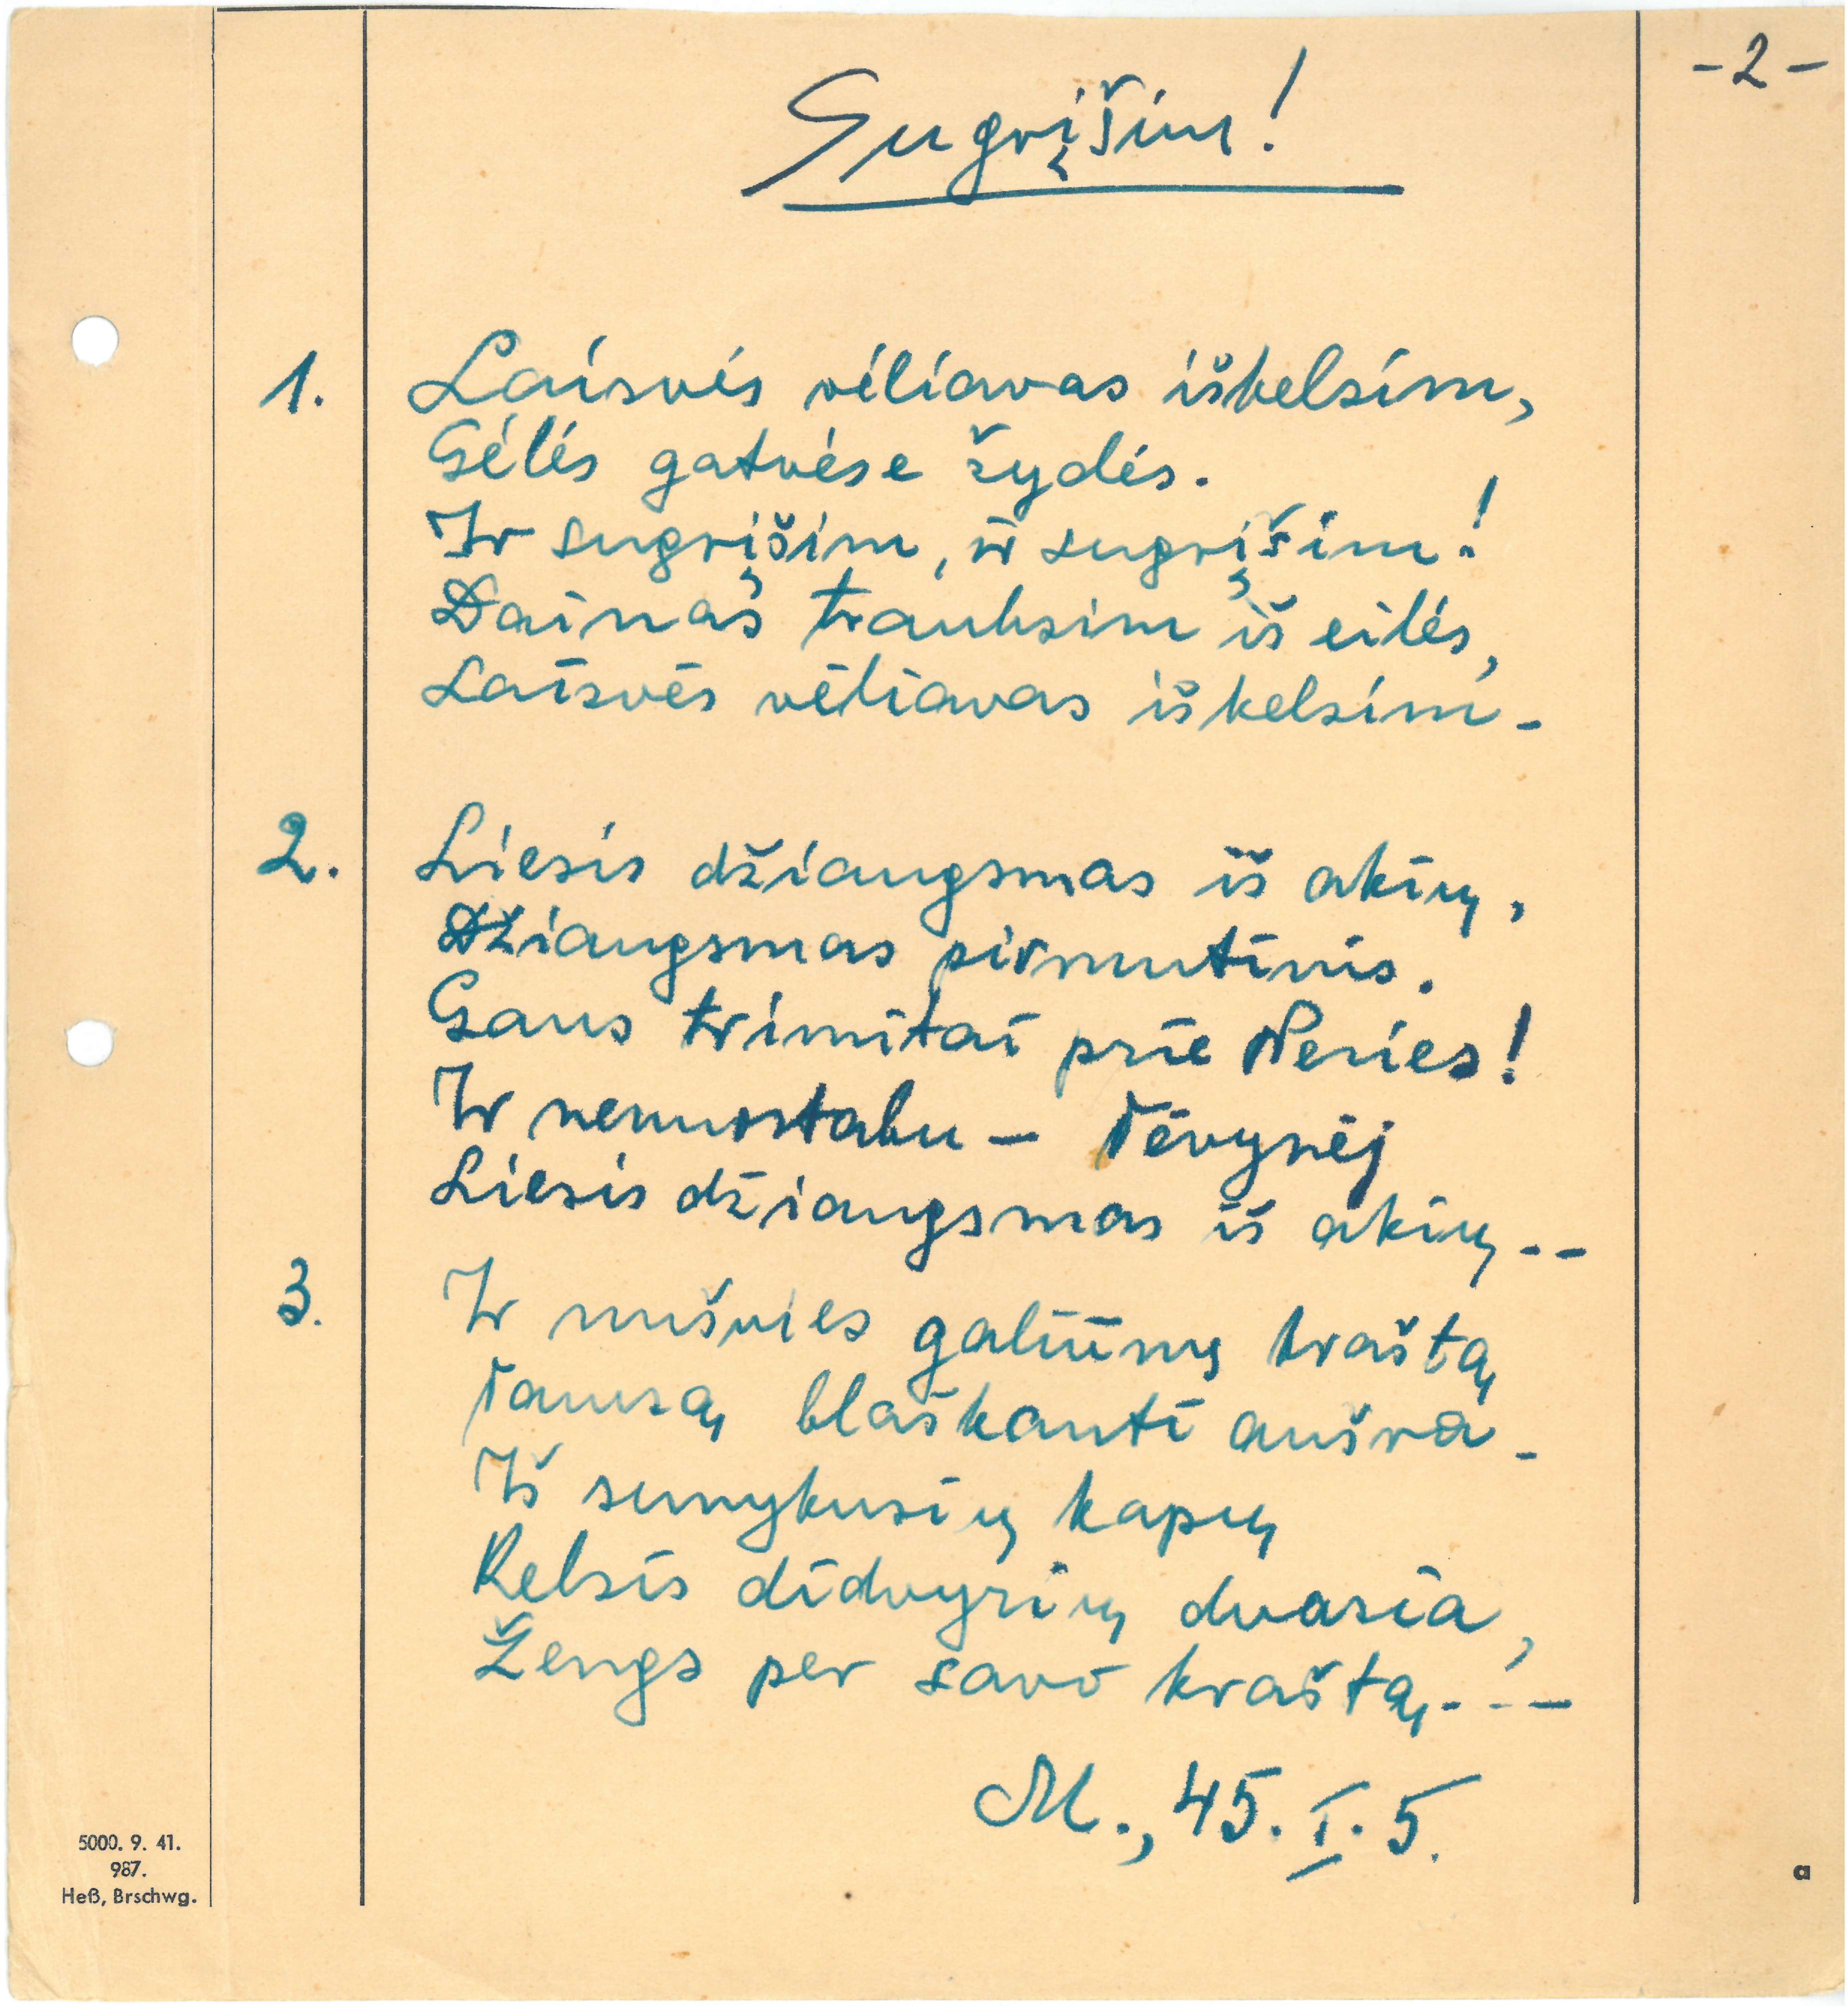 -2-
Sugrįšim!
1. Laisvės vėliavas iškelsim,
Gėlės gatvėse žydės.
Ir sugrįšim, ir sugrįšim!
Dainas trauksim iš eilės,
Laisvės vėliavas iškelsim -
2. Liesis džiaugsmas iš akių,
Džiaugsmas pirmutinis.
Gaus trimitai prie Neries!
Ir nenuostabu - Tėvynėj
Liesis džiaugsmas iš akių --
3. Ir nušvies galiūnų kraštą
Tamsą blaškanti aušra -
Iš sunykusių kapų
Kelsis didvyrių dvasia,
Žengs per savo kraštą - - -
M., 45. I. 5.
5000. 9. 41.
987.
Heß, Brschwg.
a